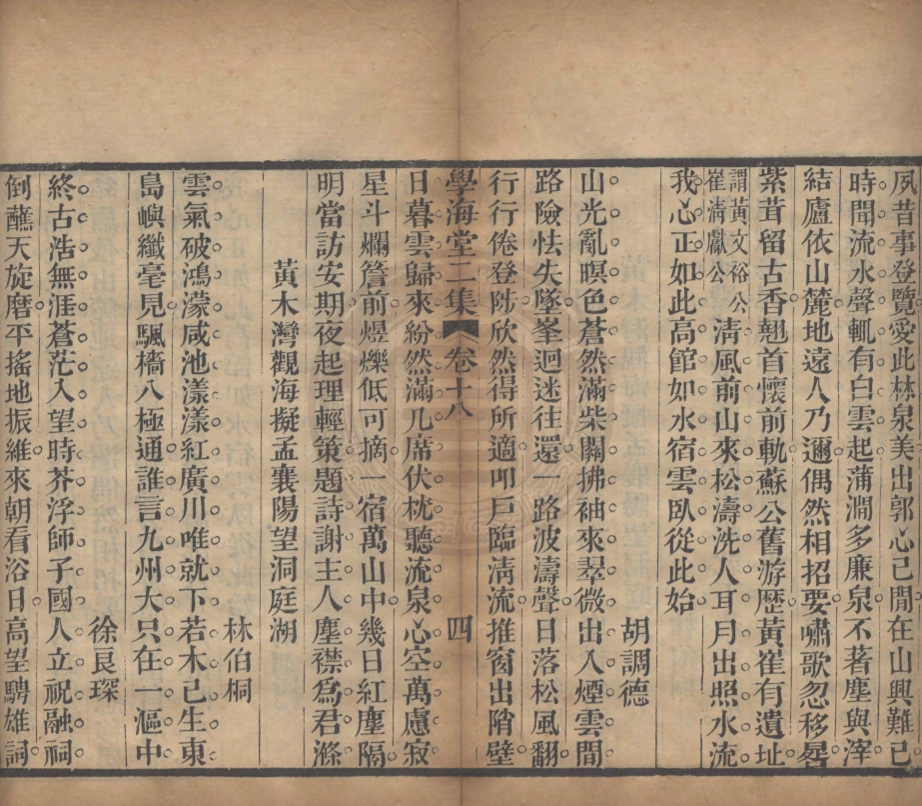 夙昔事登覽愛此林泉美出郭心已閒在山興難已
時聞流水聲輒有白雲起蒲澗多廉泉不著塵與滓
結廬依山麓地遠人乃邇偶然相招要嘯歌忽移晷
紫茸留古香翹首懷前軌蘇公舊游歷黃崔有遺址
謂黃文裕公
崔清獻公
清風前山來松濤洗人耳月出照水流
我心正如此高館如水宿雲臥從此始
胡調德
山光亂暝色蒼然滿柴關拂袖來翠微出入煙雲間
路險怯失墜峯迴迷往還一路波濤聲日落松風翻
行行倦登陟欣然得所適叩戶臨清流推窗出階壁
學海堂二集 卷十八 四
日暮雲歸來紛然滿几席伏枕聽流泉心空萬慮寂
星斗爛簷前煜爍低可摘一宿萬山中幾日紅塵隔
明當訪安期夜起理輕策題詩謝主人塵襟爲君滌
黃木灣觀海擬孟襄陽望洞庭湖
林伯桐
雲氣破鴻濛咸池漾漾紅廣川唯就下若木已生東
島嶼纖毫見颿檣八極通誰言九州大只在一漚中
徐良琛
終古浩無涯蒼茫入望時芥浮師子國人立祝融祠
倒蘸天旋磨平搖地振維來朝看浴日高望騁雄詞